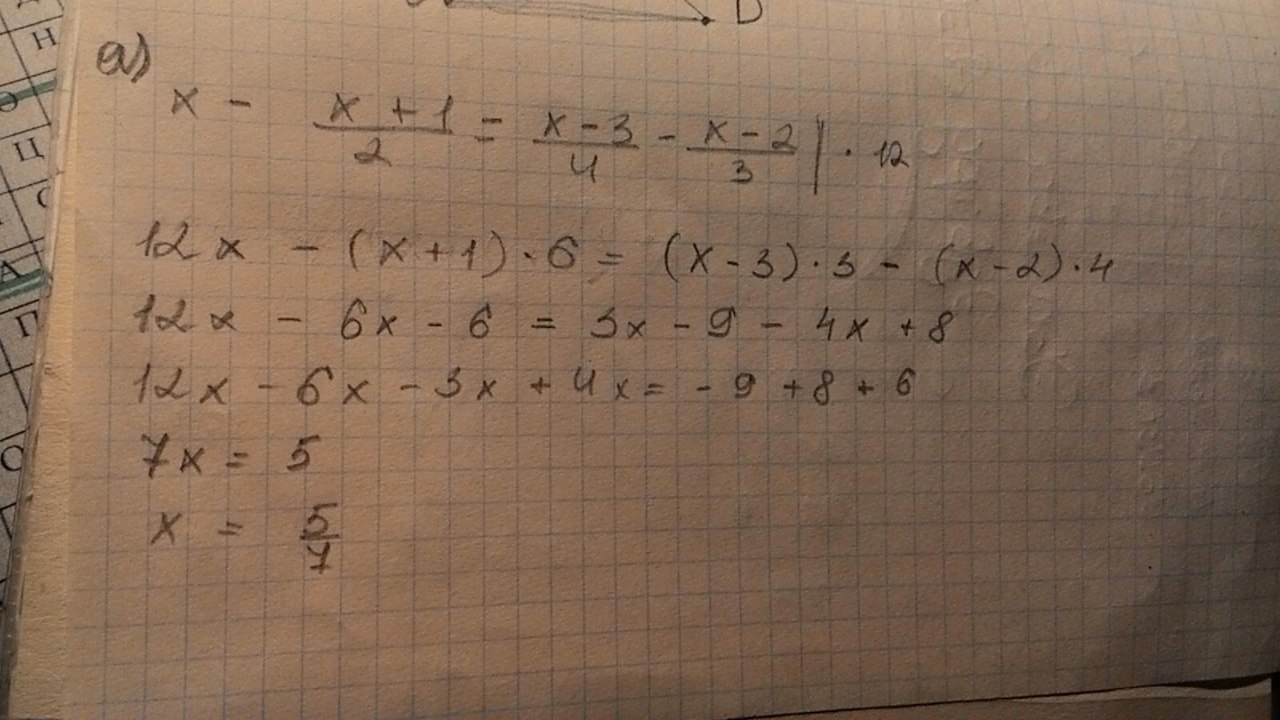 D
а)
x - \frac{x+1}{2} = \frac{x-3}{4} - \frac{x-2}{3} | · 12
12x - (x+1)·6 = (x-3)·3 - (x-2)·4
12x - 6x - 6 = 3x - 9 - 4x + 8
12x - 6x - 3x + 4x = -9 + 8 + 6
7x = 5
x = \frac{5}{7}
Н
Ц
С
А
П
О